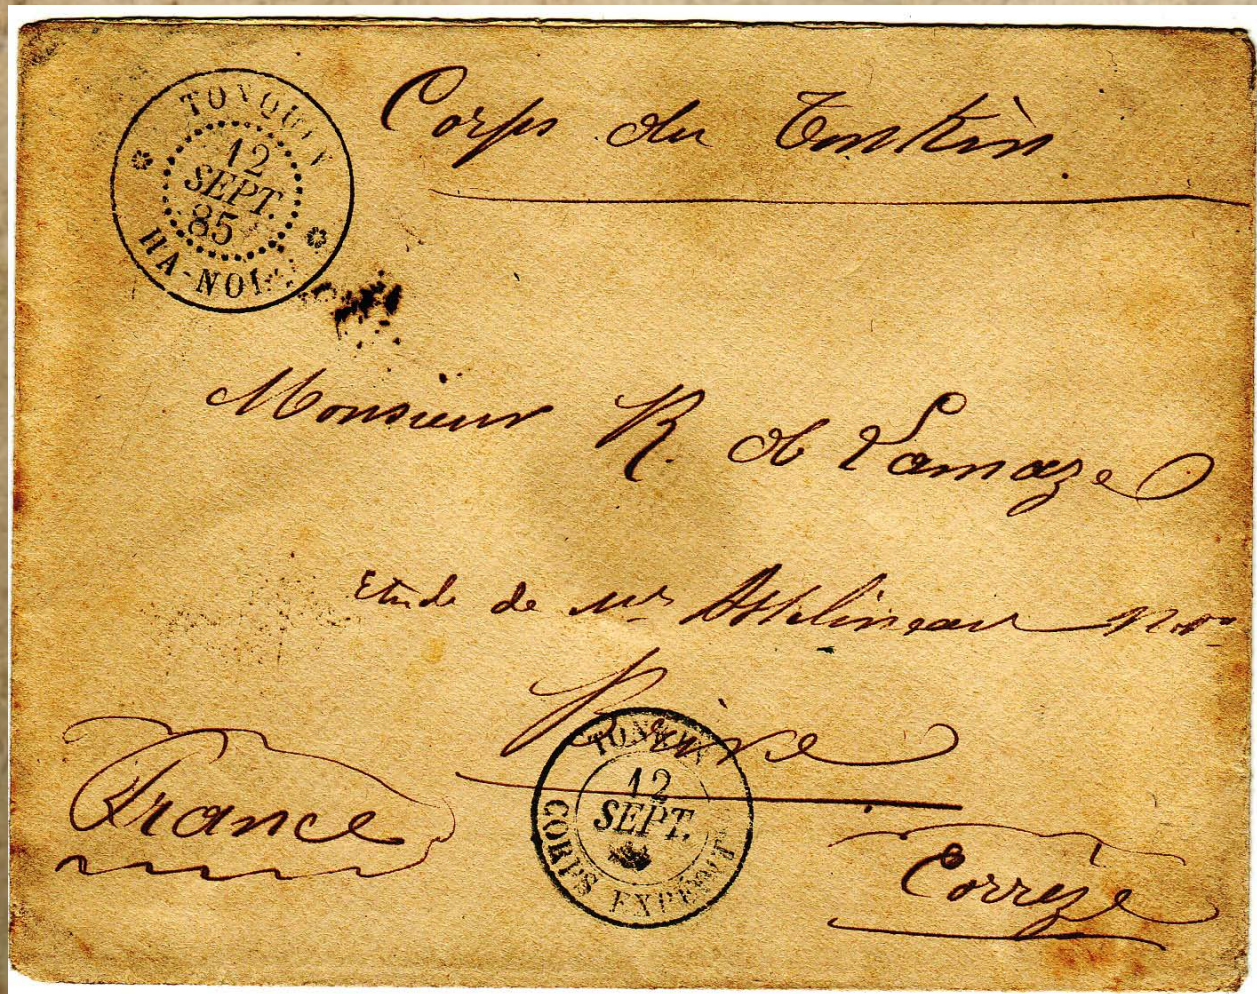 TONQUIN
12
SEPT.
85
HA-NOI
Corps du Tonkin
Monsieur R. de Lamaze
Etude de Me Asselineau Nre
Brive
TONKIN
12
SEPT.
CORPS EXPEDIT
France
Corrèze